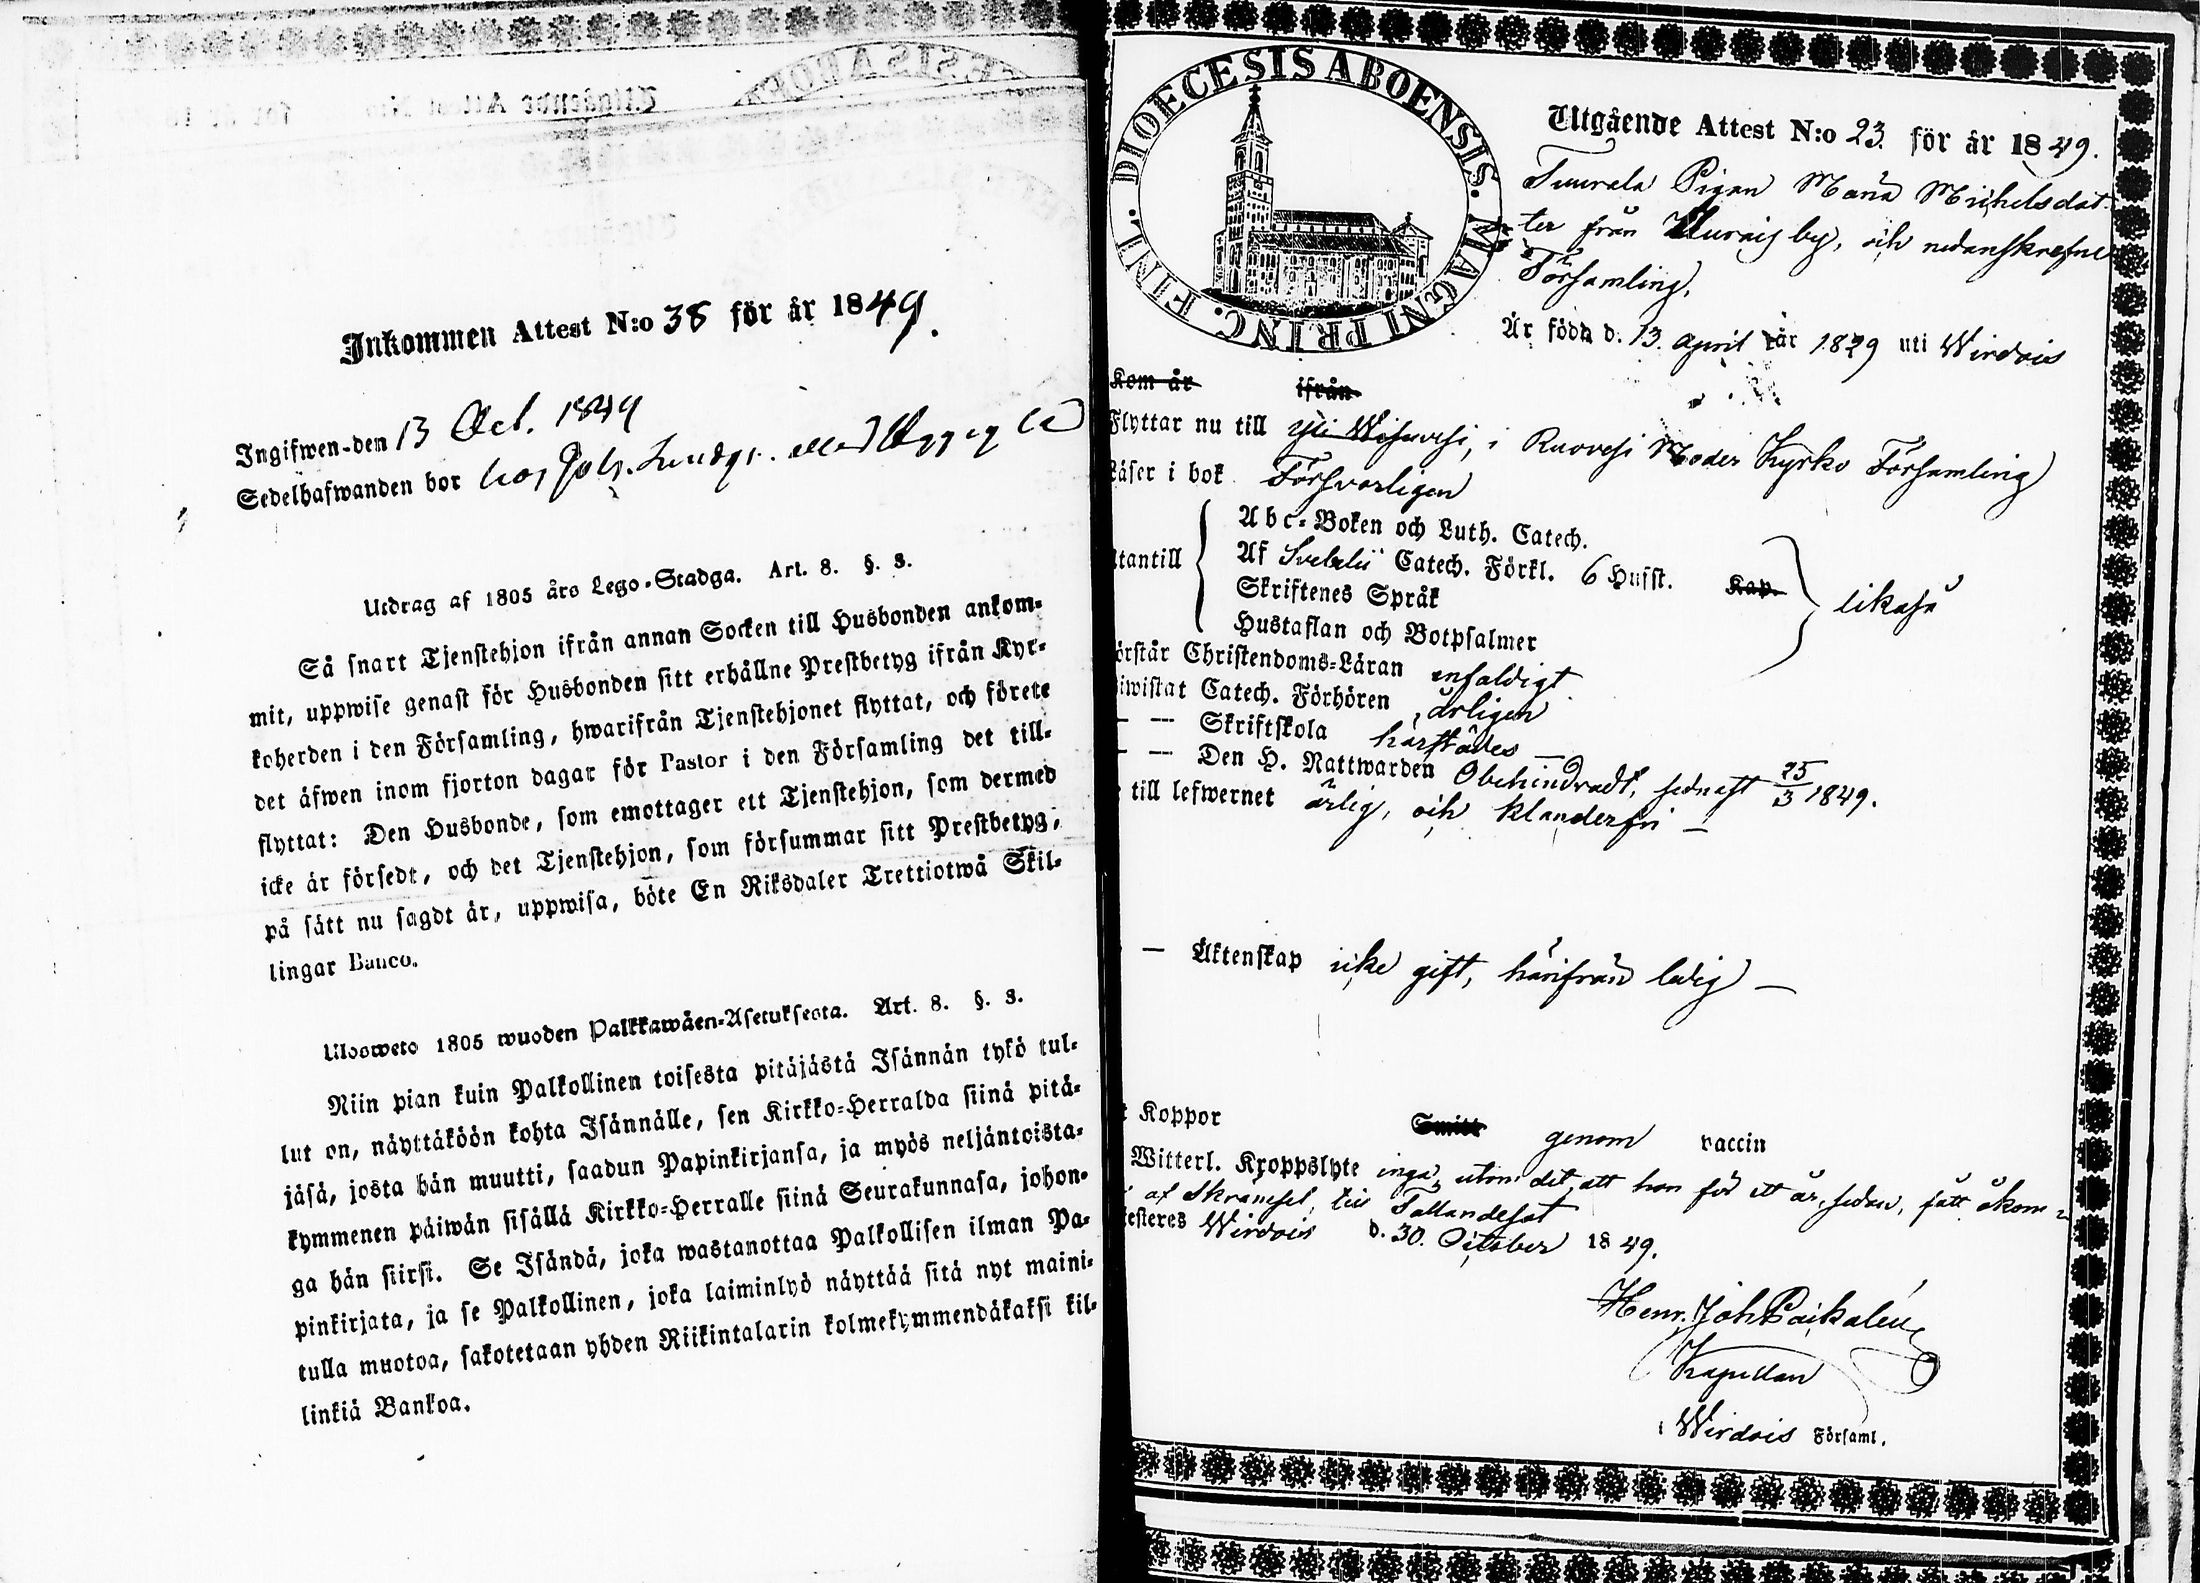 Inkommen Attest N:o 38 för år 1849.
Ingifwen den 13 Oct. 1849
Sedelhafwanden bor hos Joh.
Utdrag af 1805 års Lego-Stadga. Art. 8. §. 3.
Så snart Tjenstehjon ifrån annan Socken till Husbonden ankom-
mit, uppwise genast för Husbonden sitt erhållne Prestbetyg ifrån Kyr-
koherden i den Församling, hwarifrån Tjenstehjonet flyttat, och förete
det äfwen inom fjorton dagar för Pastor i den Församling det till-
flyttat: Den Husbonde, som emottager ett Tjenstehjon, som dermed
icke är försedt, och det Tjenstehjon, som försummar sitt Prestbetyg,
på sätt nu sagdt är, uppwisa, böte En Riksdaler Trettiotwå Skil-
lingar Banco.
Ulosweto 1805 wuoden Palkkawäen-Asetuksesta. Art. 8. §. 3.
Niin pian kuin Palkollinen toisesta pitäjästä Isännän tykö tul-
lut on, näyttäköön kohta Isännälle, sen Kirkko-Herralda siinä pitä-
jäsä, josta hän muutti, saadun Papinkirjansa, ja myös neljäntoista-
kymmenen päiwän sisällä Kirkko-Herralle siinä Seurakunnasa, johon-
ga hän siirsi. Se Isändä, joka wastanottaa Palkollisen ilman Pa-
pinkirjata, ja se Palkollinen, joka laiminlyö näyttää sitä nyt maini-
tulla muotoa, sakotetaan yhden Riikintalarin kolmekymmendäkaksi kil-
linkiä Bankoa.
DIOECESIS ABOENSIS. MAGNI PRINC. FINL.
Utgående Attest N:o 23. för år 1849.
Tuurala Pigan Maria Michelsdot-
ter från by, och nedanskrefne
Församling.
Är född d. 13. April år 1829 uti Wirdois
Kom år ifrån
Flyttar nu till i Ruovesi Moder Kyrko Församling
Läser i bok Försvarligen
Abc-Boken och Luth. Catech.
Utantill Af Svebelii Catech. Förkl. 6 Hufst. Kap. likaså
Skriftenes Språk
Hustaflan och Botpsalmer
örstår Christendoms-Läran enfaldigt
iwistat Catech. Förhören årligen
— — Skriftskola härstädes —
— — Den H. Nattwarden Obehindradt, sednast 25/3 1849.
till lefwernet ärlig, och klanderfri —
— Äktenskap icke gift, härifrån ledig —
Koppor Smitt genom vaccin
Witterl. Kroppslyte inga, utom det, att hon för ett år sedan, fått åkom-
af skrämsel, till Fallandesot
esteres Wirdois d. 30. October 1849.
Henr. Joh Paikalén
Kapellan
i Wirdois Församl.